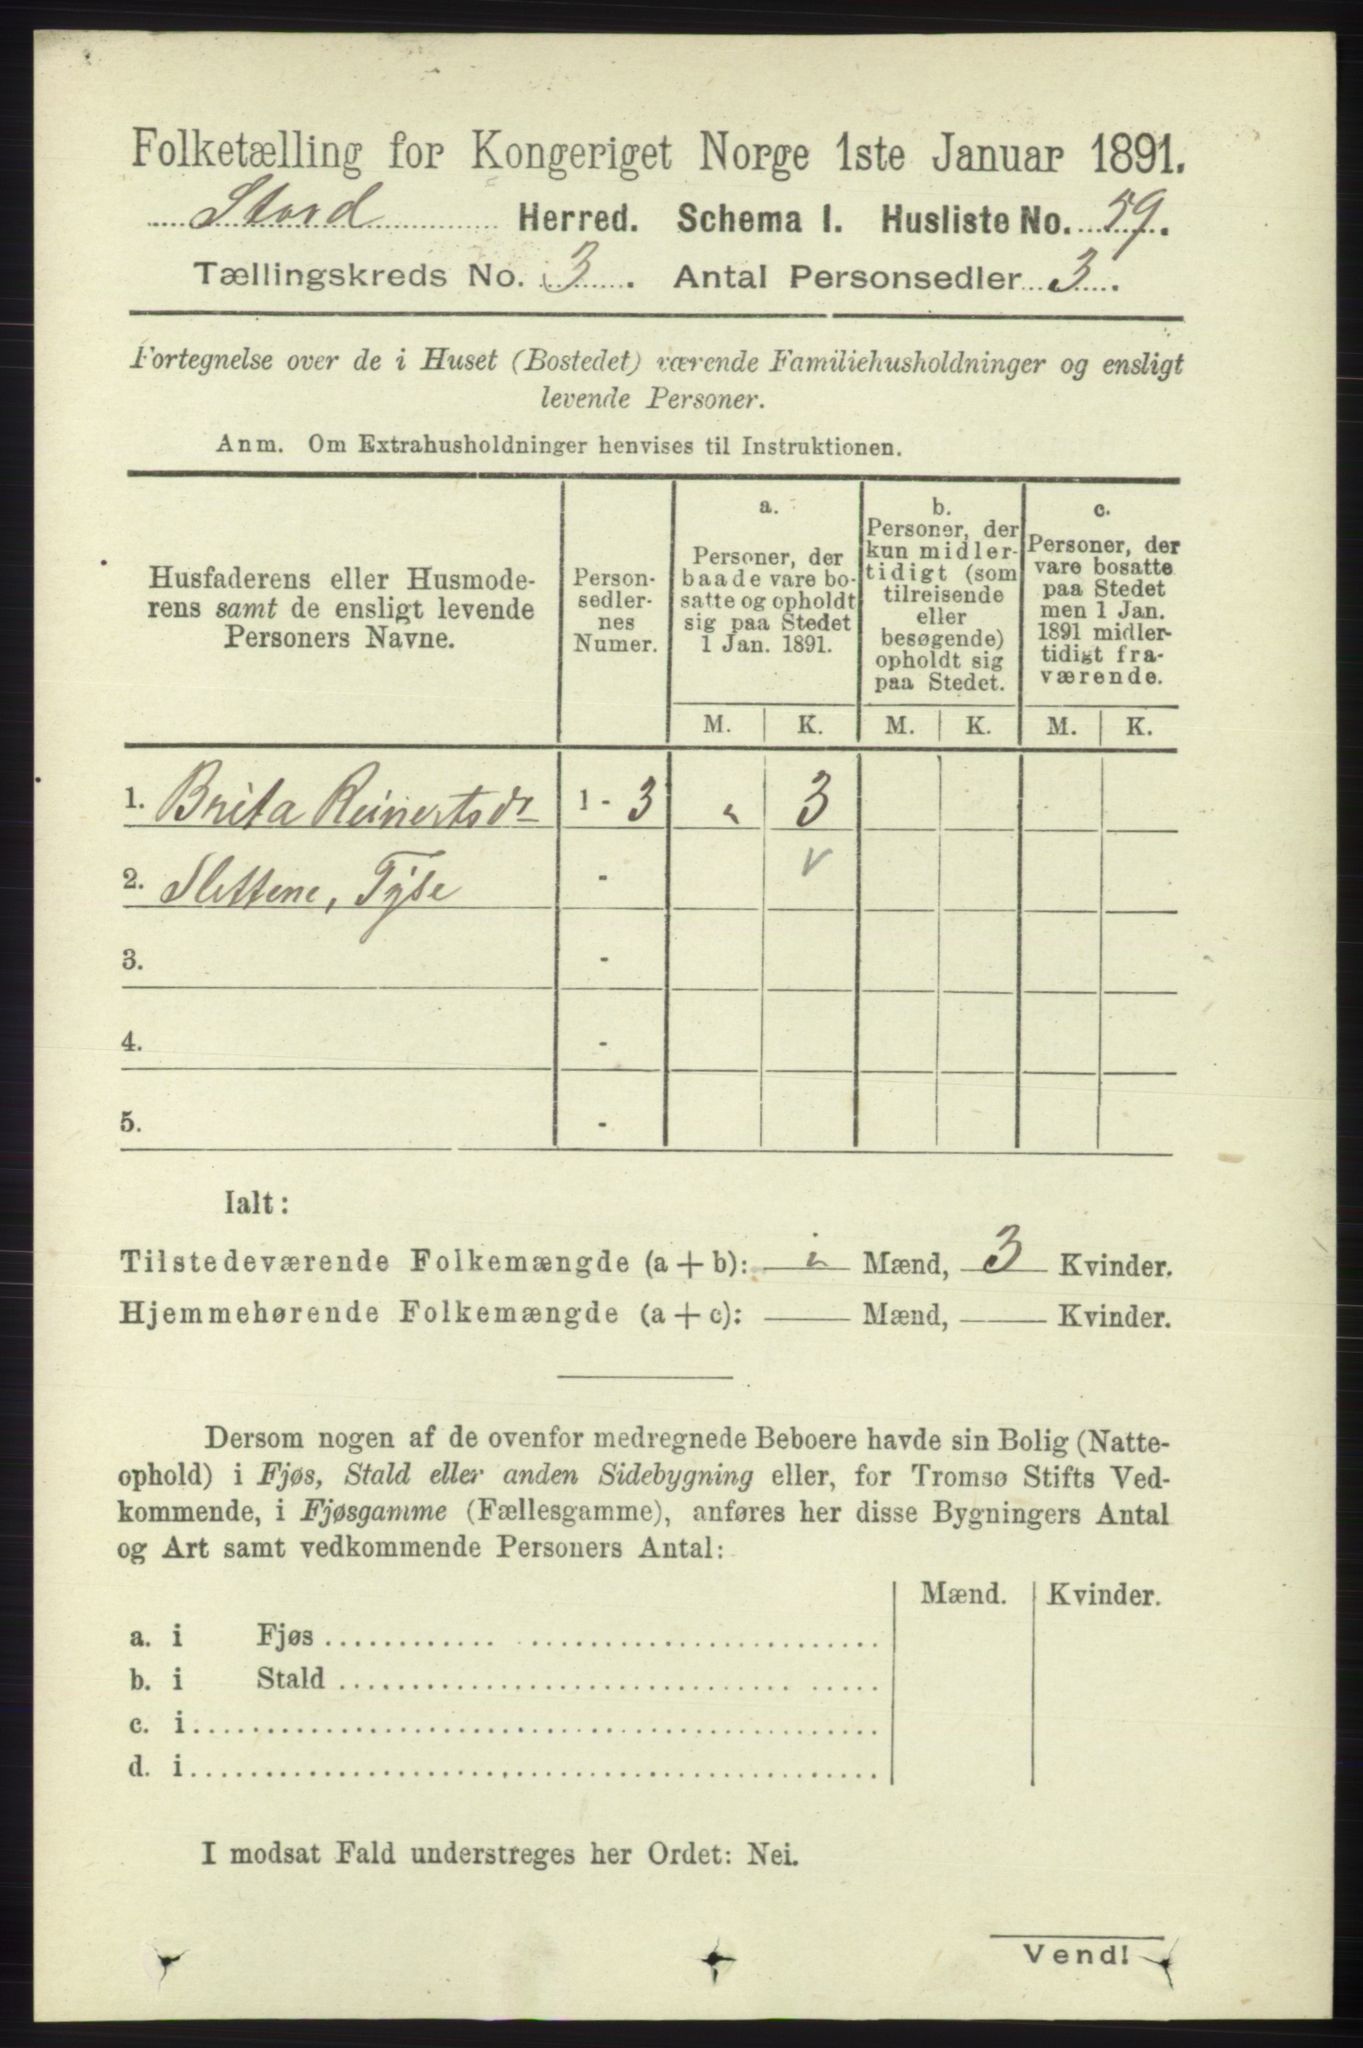 Folketælling for Kongeriget Norge 1ste Januar 1891.
Stord Herred. Schema I. Husliste No. 59.
Tællingskreds No. 3. Antal Personsedler 3.
Fortegnelse over de i Huset (Bostedet) værende Familiehusholdninger og ensligt
levende Personer.
Anm. Om Extrahusholdninger henvises til Instruktionen.
Husfaderens eller Husmode-
rens samt de ensligt levende
Personers Navne.
Person-
sedler-
nes
Numer.
a.
Personer, der
baade vare bo-
satte og opholdt
sig paa Stedet
1 Jan. 1891.
b.
Personer, der
kun midler-
tidigt (som
tilreisende
eller
besøgende)
opholdt sig
paa Stedet.
c.
Personer, der
vare bosatte
paa Stedet
men 1 Jan.
1891 midler-
tidigt fra-
værende.
M. K. M. K. M. K.
1. Brita Reinertsdr 1 - 3 " 3
2. Slettene, Tyse - v
3. -
4. -
5. -
Ialt:
Tilstedeværende Folkemængde (a + b): " Mænd, 3 Kvinder.
Hjemmehørende Folkemængde (a + c): Mænd, Kvinder.
Dersom nogen af de ovenfor medregnede Beboere havde sin Bolig (Natte-
ophold) i Fjøs, Stald eller anden Sidebygning eller, for Tromsø Stifts Ved-
kommende, i Fjøsgamme (Fællesgamme), anføres her disse Bygningers Antal
og Art samt vedkommende Personers Antal:
Mænd. Kvinder.
a. i Fjøs
b. i Stald
c. i
d. i
I modsat Fald understreges her Ordet: Nei.
Vend!